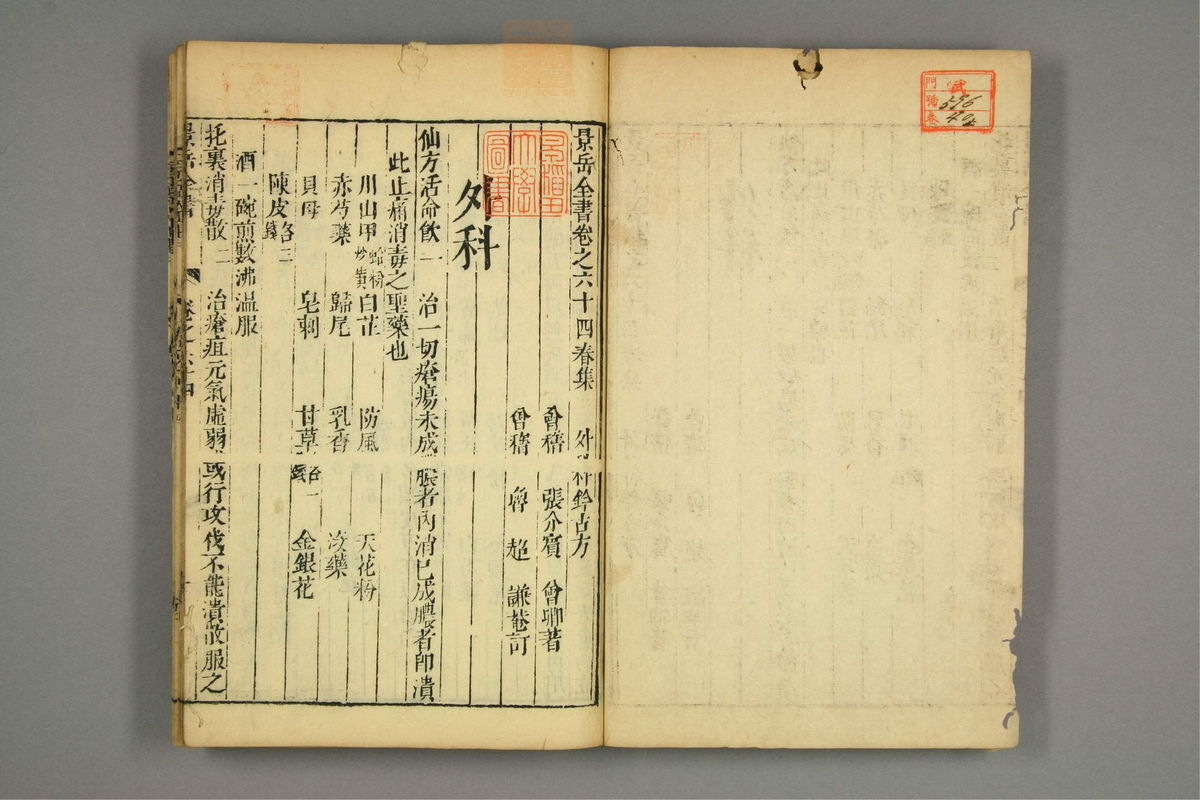 門 貳
號 596
卷 42
景岳全書卷之六十四春集 外科鈐古方
會稽 張介賓 會卿著
會稽 魯超 謙菴訂
早稲田大學圖書
外科
仙方活命飲一 治一切瘡瘍未成膿者內消已成膿者卽潰
此止痛消毒之聖藥也
川山甲蛤粉炒黃 白芷 防風 天花粉
赤芍藥 歸尾 乳香 沒藥
貝母 皂刺 甘草各一錢 金銀花
陳皮各三錢
酒一碗煎數沸溫服
托裏消毒散二 治瘡疽元氣虛弱或行攻伐不能潰散服之
景岳全書 卷之六十四